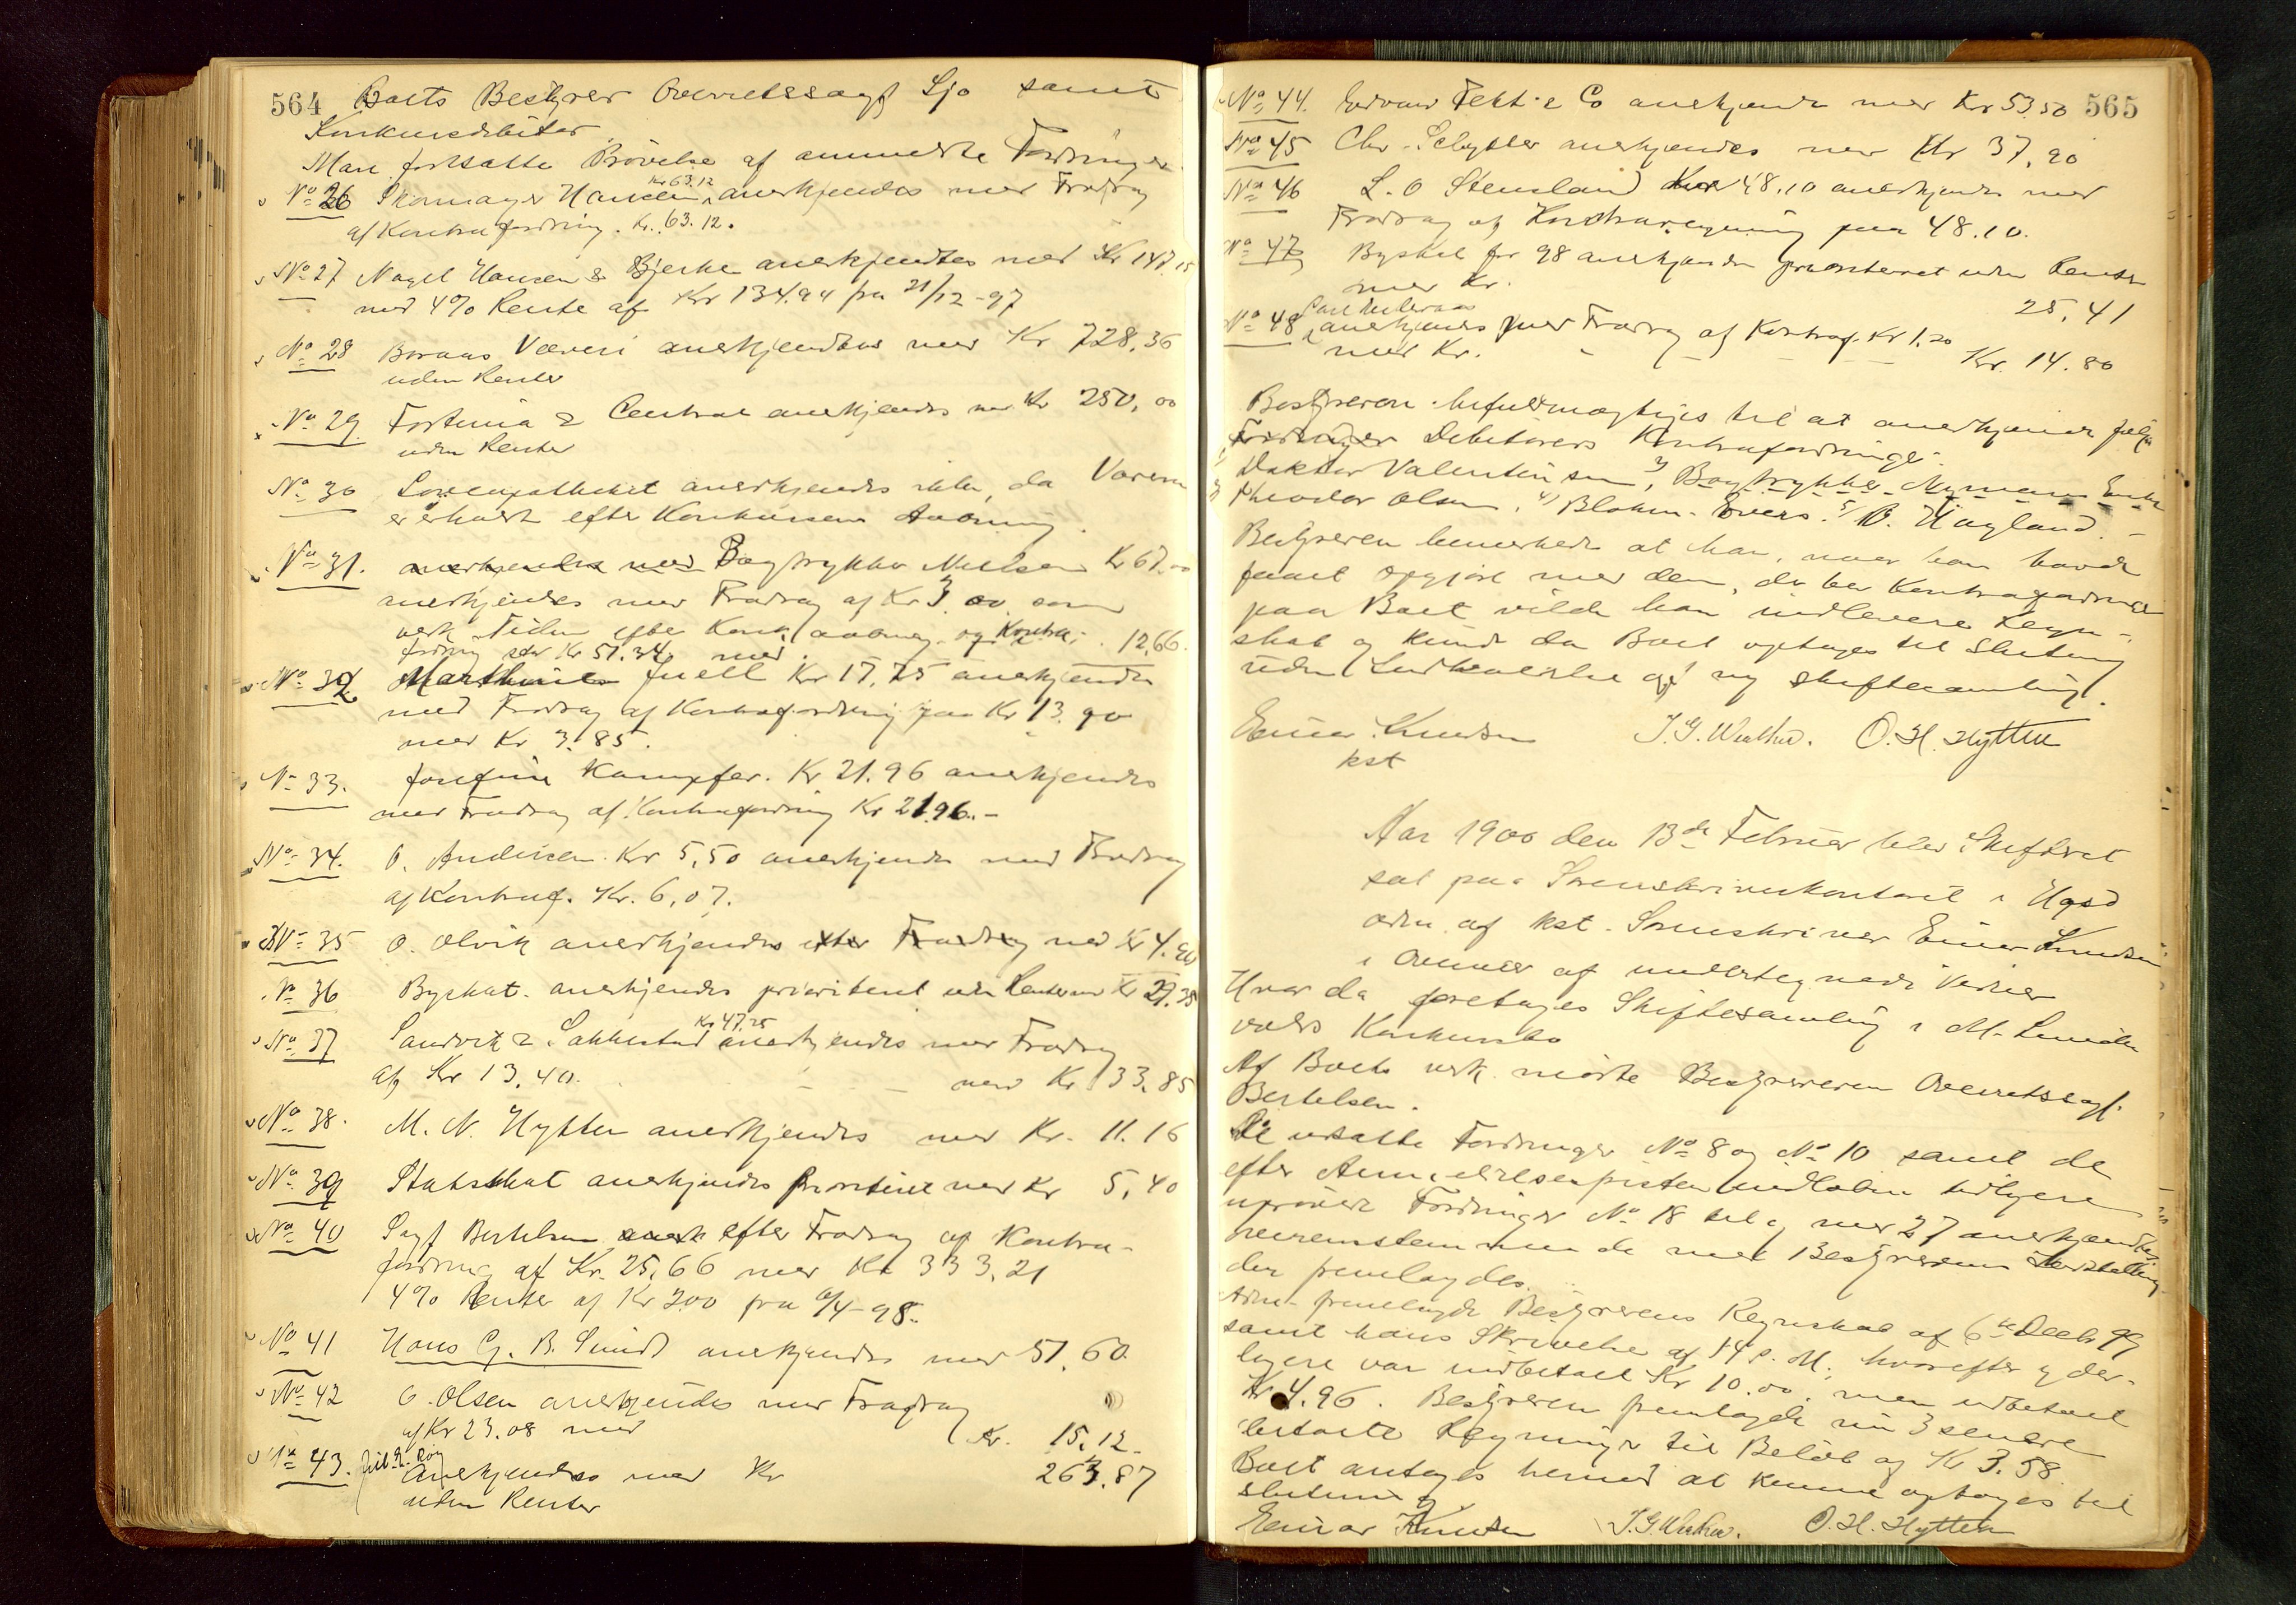 564 Boets Bestyrer Overretssagf Sjo samt
Konkursdebitor.
Man fortsatte Prövelse af anmeldte Fordringer
No 26 Skomager Hansen Kr 63.12 anerkjendes med Fradrag
af Kontrafordring. Kr. 63.12.
No 27 Nagel Hansen & Bjerke anerkjendtes med Kr 147.15
med 4% Rente af Kr 134.94 fra 21/12-97
No 28 Boraas Væveri anerkjendtes med Kr 728,36
uden Renter
No 29 Fortuna & Central anerkjendes med Kr 250,00
uden Renter
No 30 Löveapotheket anerkjendes ikke, da Varerne
er erholdt efter Konkursens Aabning.
No 31. anerkjendes med Bogtrykker Nielsen Kr 67.00
anerkjendes med Fradrag af Kr 3.00 som
vedk. Tiden efter Konk. aabning og Kontra-
fordring stor Kr 51.34 med 12,66.
No 32 Marthine Juell Kr 17,75 anerkjendes
med Fradrag af Kontrafordring paa Kr 13.90
med Kr 3.85.
No 33. Josefine Kampfer. Kr 21.96 anerkjendes
med Fradrag af Kontrafordring Kr 21.96.-
No 34. O. Andersen. Kr 5,50 anerkjendes med Fradrag
af Kontraf. Kr. 6,07.
No 35 O. Olvik anerkjendes efter Fradrag med Kr 4.90
No 36 Byskat. anerkjendes prioriteret uden Renter med Kr 27.35
No 37 Sandvik & Sakkestad Kr 47.25 anerkjendes med Fradrag
af Kr 13,40. med Kr 33.85
No 38. M. N. Hytten anerkjendes med Kr. 11.16
No 39 Statsskat anerkjendes Prioriteret med Kr 5,40
No 40 Sagf Bertelsen anerk efter Fradrag af Kontra-
fordring af Kr. 25,66 med Kr 333,21
4% Renter af Kr 200 fra 6/4-98.
No 41 Hans G. B. Sundt anerkjendes med 51.60.
No 42 O. Olsen anerkjendes med Fradrag
af Kr 23.08 med Kr. 15.12.
No 43. Anerkjendes med Kr 263.87
uden Renter
No 44. Edvard Fett & Co anerkjendes med Kr 53.50 565
No 45 Chr. Schytter anerkjendes med Kr 37,90
No 46 L. O Stensland Kr 48,10 anerkjendes med
Fradrag af Kontraregning paa 48.10.
No 47 Byskat for 98 anerkjendes prioriteret uden Renter
med Kr. 25,41
No 48 anerkjendes med Fradrag af Kontraf. Kr 1.20
med Kr. Kr. 14.80
Bestyreren befuldmægtiges til at anerkjende følg.
Fordringer Debitorers Kontrafordringer.
Doktor Valentinsen, 3) Bogtrykker Nymann Enke
Theodor Olsen, 4) Blohm. 5) B. Hagland.
Bestyreren bemerkede at han, naar han havde
faaet opgjort med dem, der har Kontrafordringer
paa Boet vilde han indlevere Regn-
skab og kunde da Boet optages til Slutning
uden Indkaldelse af ny Skiftesamling.
Einar Knudsen J. G. Wather. O. H. Hytten
kst
Aar 1900 den 13de Februar blev Skifteret
sat paa Sorenskriverkontoret i Hgsd
adm. af kst. Sorenskriver Einar Knudsen
i Overvær af undertegnede Vidner
Hvor da foretoges Skiftesamling i M. Lunde
valds Konkursbo
Af Boets vedk. mödte Bestyreren Overretssagf.
Bertelsen.
De udsatte Fordringer No 8 og No 10 samt de
efter Anmeldelsesfristen indlöbne tidligere
uprövede Fordringer No 18 til og med 27 anerkjendtes
overensstemmende med Bestyrerens Indstilling
der fremlagdes.
Adm. fremlagde Bestyrerens Regnskab af 6te Decbr 99
samt hans Skrivelse af 14 s. M., hvorefter yder-
ligere var indbetalt Kr 10.00, men udbetalt
Kr 4.96. Bestyreren fremlagde nu 3 senere
betalte Regninger til Beløb af Kr 3.58.
Boet antages hermed at kunne optages til
slutning.
Einar Knudsen J. G. Wather. O. H. Hytten